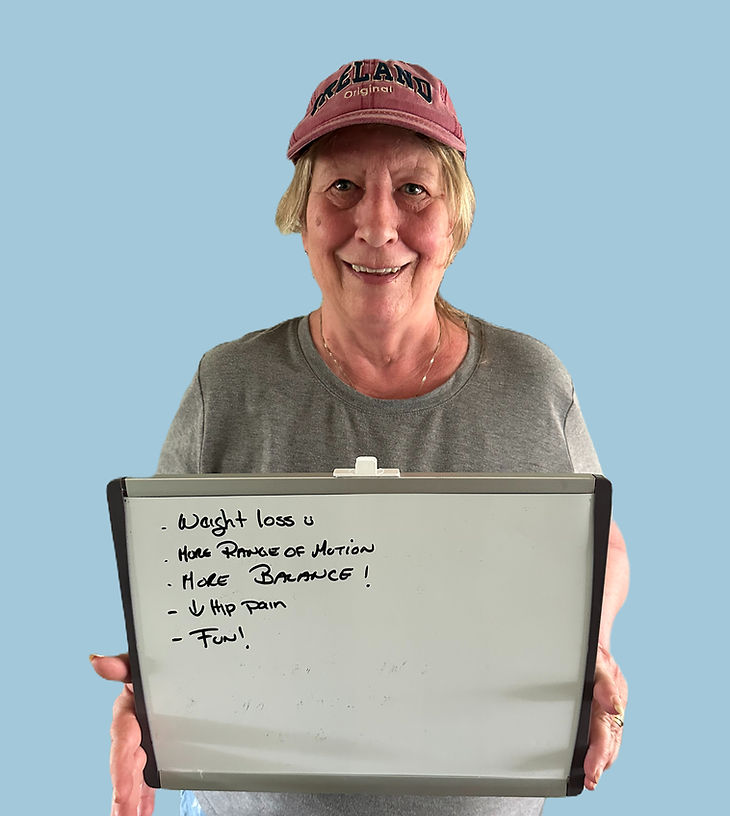 IRELAND
Original
. Weight loss ü
. More Range of Motion
. More Balance!
- ↓ Hip pain
- Fun!